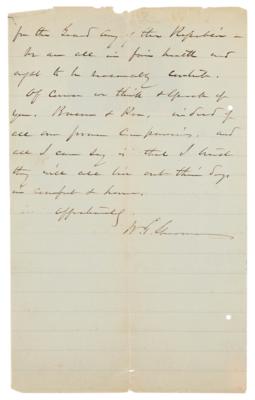 for the Grand Army of the Republic -
We are all in fine health and
ought to be reasonably
Of course we think & speak of
you, & indeed of
all our former Companions, and
all I can say is that I trust
they will all live out their days
in comfort & honor.
Affectionately
W. T. Sherman